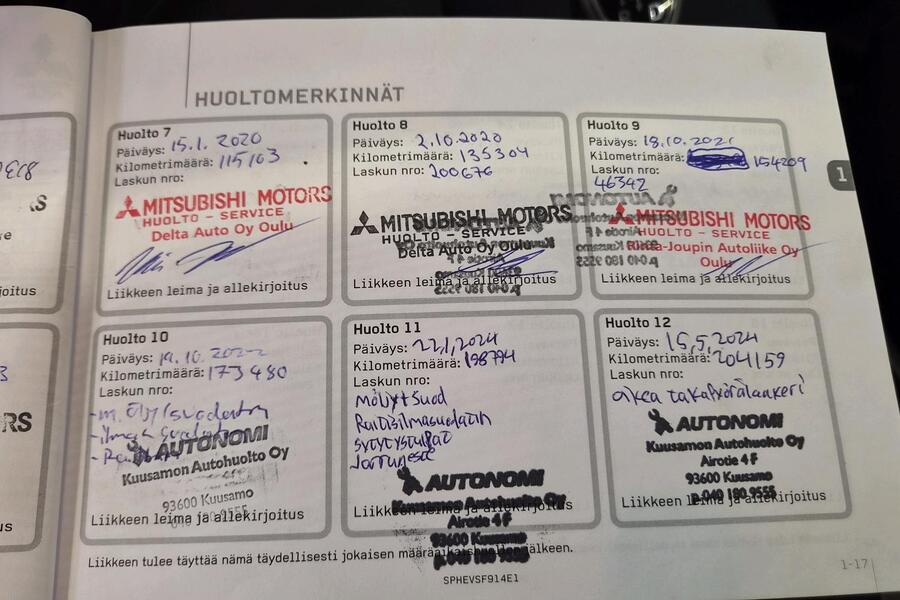 HUOLTOMERKINNÄT
Huolto 7
Päiväys: 15.1.2020
Kilometrimäärä: 115103
Laskun nro:
MITSUBISHI MOTORS
HUOLTO - SERVICE
Delta Auto Oy Oulu
Liikkeen leima ja allekirjoitus
Huolto 8
Päiväys: 2.10.2020
Kilometrimäärä: 135304
Laskun nro: 200676
MITSUBISHI MOTORS
HUOLTO - SERVICE
Delta Auto Oy Oulu
Liikkeen leima ja allekirjoitus
Huolto 9
Päiväys: 18.10.2021
Kilometrimäärä: 154209
Laskun nro:
46342
MITSUBISHI MOTORS
HUOLTO - SERVICE
Rinta-Joupin Autoliike Oy
Oulu
Liikkeen leima ja allekirjoitus
Huolto 10
Päiväys: 19.10.2022
Kilometrimäärä: 173480
Laskun nro:
AUTONOMI
Kuusamon Autohuolto Oy
93600 Kuusamo
Liikkeen leima ja allekirjoitus
Huolto 11
Päiväys: 22.1.2024
Kilometrimäärä: 198794
Laskun nro:
Möljyt+Suod
Raitisilmasuodatin
sytytystulpat
Jarruneste
AUTONOMI
Kuusamon Autohuolto Oy
Liikkeen leima ja allekirjoitus
Airotie 4 F
93600 Kuusamo
p.040 180 9555
Huolto 12
Päiväys: 15.5.2024
Kilometrimäärä: 204159
Laskun nro:
oikea takapyöränlaakeri
AUTONOMI
Kuusamon Autohuolto Oy
Airotie 4 F
93600 Kuusamo
p.040 180 9555
Liikkeen leima ja allekirjoitus
Liikkeen tulee täyttää nämä täydellisesti jokaisen määräaikaishuollon jälkeen.
SPHEVSF914E1
1-17
1